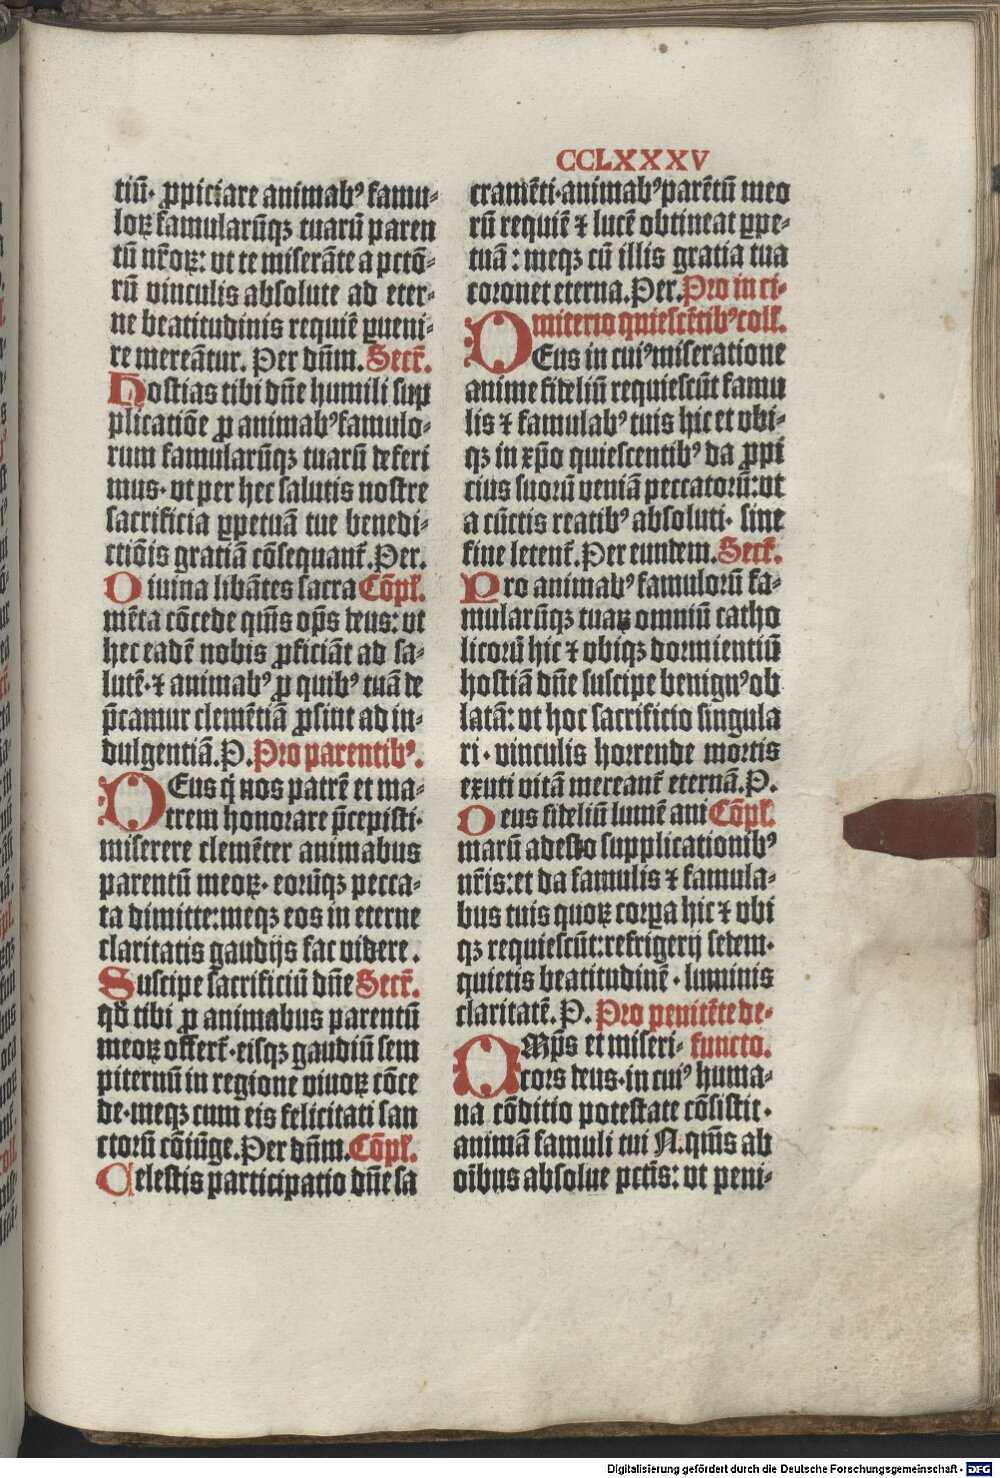 CCLXXXV
tiū· ꝓpiciare animabꝰ famu⸗
loꝝ famularūqꝫ tuarū paren
tū nr̄oꝝ: vt te miserāte a pctō⸗
rū vinculis absolute ad eter⸗
ne beatitudinis requiē ꝑueni⸗
re mereātur. Per dn̄m. Secr̄.
Hostias tibi dn̄e humili sup
plicatiōe ꝓ animabꝰ famulo⸗
rum famularūqꝫ tuarū deferi
mus· vt per hec salutis nostre
sacrificia ꝑpetuā tue benedi⸗
ctiōis gratiā cōsequant᷑. Per.
Diuina libātes sacra Cōpl̄.
mēta cōcede qm̄s op̄s deus: vt
hec eadē nobis ꝓficiāt ad sa⸗
lutē· ⁊ animabꝰ ꝓ quibꝰ tuā de
p̄camur clemētiā ꝓsint ad in⸗
dulgentiā. P. Pro parentibꝰ.
DEus q̇ nos patrē et ma⸗
trem honorare p̄cepisti·
miserere clemēter animabus
parentū meoꝝ· eorūqꝫ pecca⸗
ta dimitte: meqꝫ eos in eterne
claritatis gaudijs fac videre.
Suscipe sacrificiū dn̄e Secr̄.
qd̄ tibi ꝓ animabus parentū
meoꝝ offert᷑· eisqꝫ gaudiū sem
piternū in regione viuoꝝ cōce
de· meqꝫ cum eis felicitati san
ctorū cōiūge. Per dn̄m. Cōpl̄.
Celestis participatio dn̄e sa
cramēti· animabꝰ parētū meo
rū requiē ⁊ lucē obtineat ꝑpe⸗
tuā: meqꝫ cū illis gratia tua
coronet eterna. Per. Pro in ci⸗
miterio quiescētibꝰ coll̄.
DEus in cuiꝰ miseratione
anime fideliū requiescūt famu
lis ⁊ famulabꝰ tuis hic et vbi⸗
qꝫ in xp̄o quiescentibꝰ da ꝓpi
cius suorū veniā peccatorū: vt
a cūctis reatibꝰ absoluti· sine
fine letent᷑. Per eundem. Secr̄.
Pro animabꝰ famulorū fa⸗
mularūqꝫ tuaꝝ omniū catho
licorū hic ⁊ vbiqꝫ dormientiū
hostiā dn̄e suscipe benignꝰ ob
latā: vt hoc sacrificio singula
ri· vinculis horrende mortis
exuti vitā mereant᷑ eternā. P.
Deus fideliū lumē ani Cōpl̄.
marū adesto supplicationibꝰ
nr̄is: et da famulis ⁊ famula⸗
bus tuis quoꝝ corꝑa hic ⁊ vbi
qꝫ requiescūt: refrigerij sedem·
quietis beatitudinē· luminis
claritatē. P. Pro penitēte de⸗
OMp̄s et miseri⸗ functo.
cors deus· in cuiꝰ huma⸗
na cōditio potestate cōsistit·
animā famuli tui N. qm̄s ab
oībus absolue pctīs: vt peni⸗
Digitalisierung gefördert durch die Deutsche Forschungsgemeinschaft - DFG